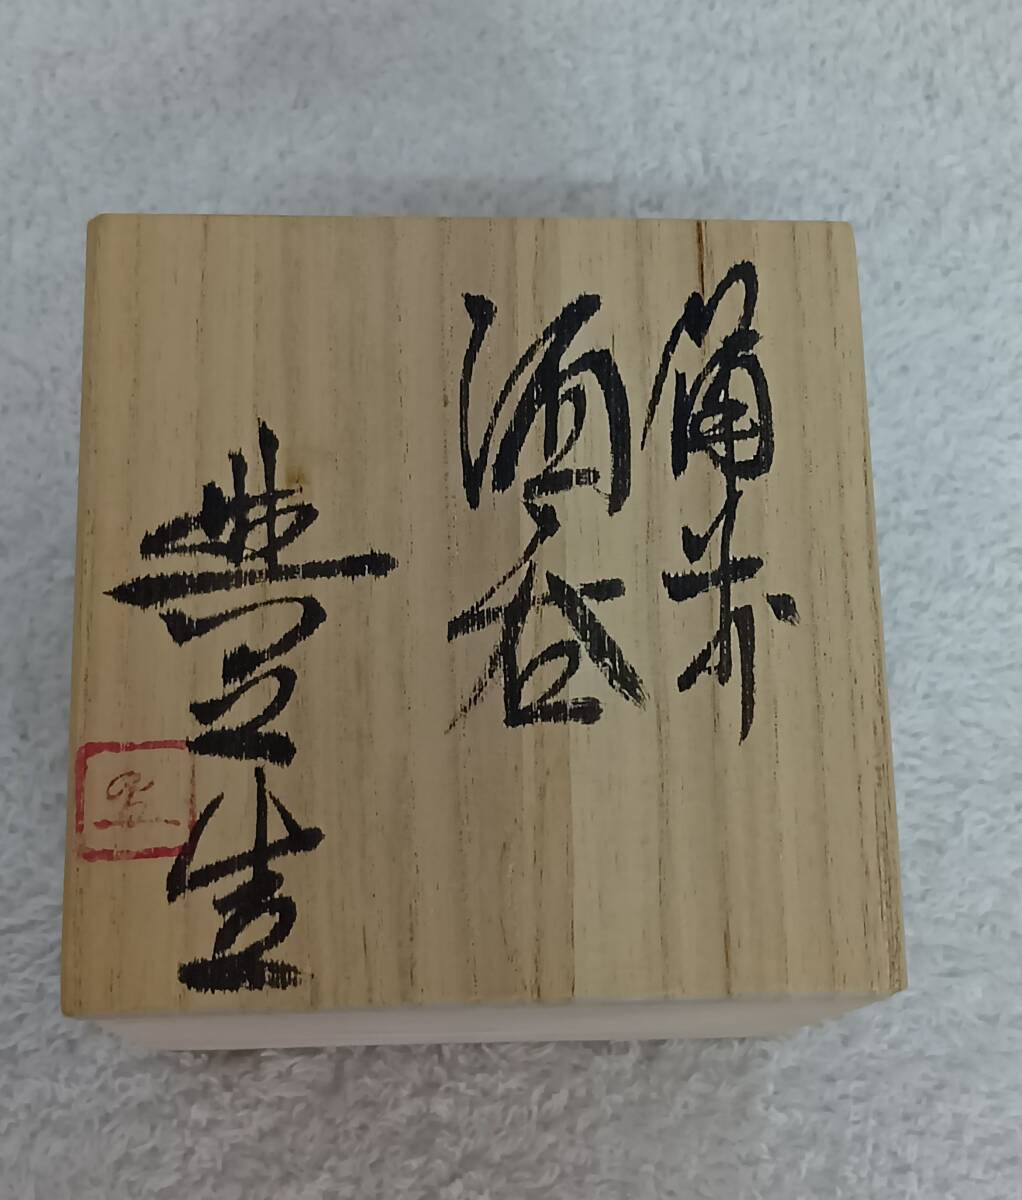 備前
酒呑
豊生